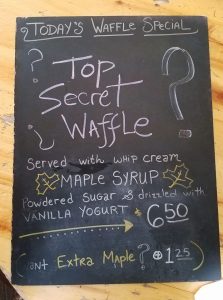 TODAY'S WAFFLE SPECIAL
?
?
TOP
SECRET
WAFFLE
¿
SERVED WITH WHIP CREAM
MAPLE SYRUP
POWDERED SUGAR & DRIZZLED WITH
VANILLA YOGURT
650
EXTRA MAPLE? 1.25